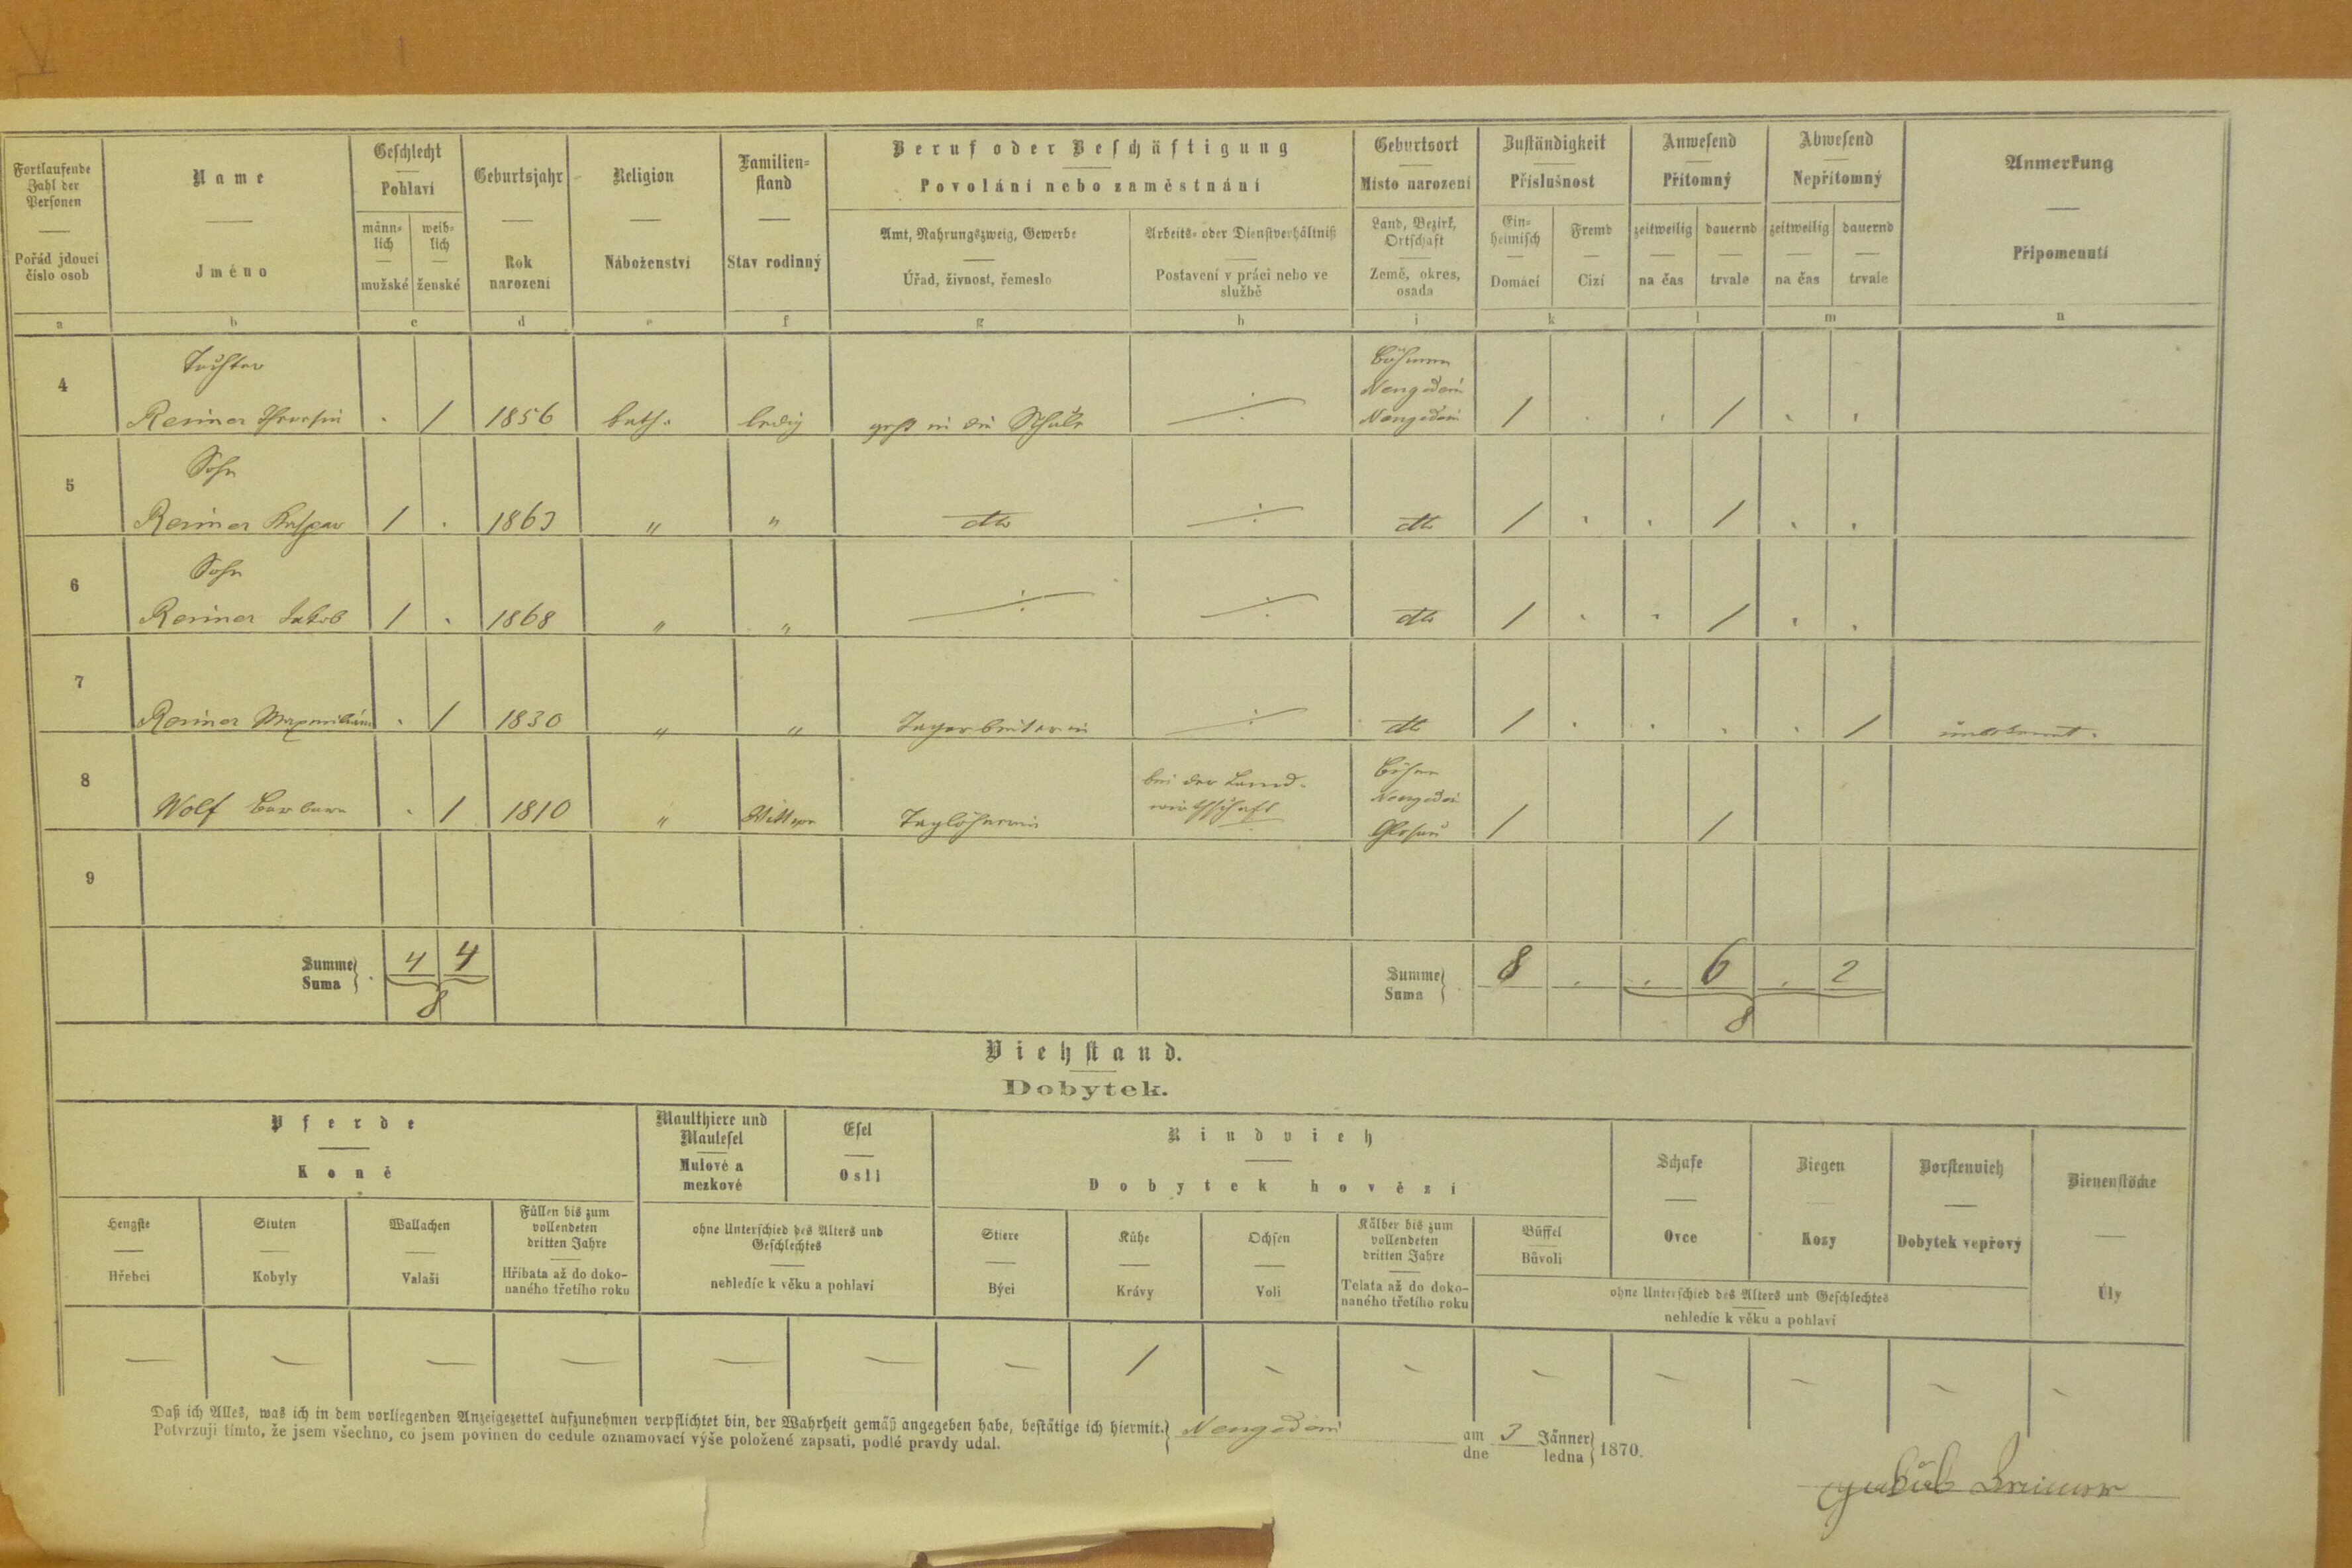 Fortlaufende Zahl der Personen
Pořád jdoucí číslo osob
Name
Jméno
Geschlecht
Pohlaví
männlich
mužské
weiblich
ženské
Geburtsjahr
Rok narození
Religion
Náboženství
Familienstand
Stav rodinný
Beruf oder Beschäftigung
Povolání nebo zaměstnání
Amt, Nahrungszweig, Gewerbe
Úřad, živnost, řemeslo
Arbeits- oder Dienstverhältniß
Postavení v práci nebo ve službě
Geburtsort
Místo narození
Land, Bezirk, Ortschaft
Země, okres, osada
Zuständigkeit
Příslušnost
Einheimisch
Domácí
Fremd
Cizí
Anwesend
Přítomný
zeitweilig
na čas
dauernd
trvale
Abwesend
Nepřítomný
zeitweilig
na čas
dauernd
trvale
Anmerkung
Připomenutí
a b c d e f g h i k l m n
4 Tochter
Reimer Theresia . / 1856 kath. ledig geht in die Schule ÷ Böhmen Neugedein Neugedein / . . / . .
5 Sohn
Reimer Kaspar / . 1863 " " dto ÷ dto / . . / . .
6 Sohn
Reimer Jakob / . 1868 " " ÷ ÷ dto / . . / . .
7
Reimer Maxmiliana . / 1830 " " Tagarbeiterin ÷ dto / . . . . / unbekannt.
8
Wolf Barbara . / 1810 " Wittwe Taglöhnerin bei der Landwirthschaft Böhmen Neugedein / /
9
Summe
Suma
4 4
8
Summe
Suma
8 . . 6 . 2
8
Viehstand.
Dobytek.
Pferde
Koně
Maulthiere und Maulesel
Mulové a mezkové
Esel
Osli
Rindvieh
Dobytek hovězí
Schafe
Ovce
Ziegen
Kozy
Borstenvieh
Dobytek vepřový
Bienenstöcke
Úly
Hengste
Hřebci
Stuten
Kobyly
Wallachen
Valaši
Füllen bis zum vollendeten dritten Jahre
Hříbata až do dokonaného třetího roku
ohne Unterschied des Alters und Geschlechtes
nehledíc k věku a pohlaví
Stiere
Býci
Kühe
Krávy
Ochsen
Voli
Kälber bis zum vollendeten dritten Jahre
Telata až do dokonaného třetího roku
Büffel
Bůvoli
ohne Unterschied des Alters und Geschlechtes
nehledíc k věku a pohlaví
— — — — — — — / — — — — — — —
Daß ich Alles, was ich in dem vorliegenden Anzeigezettel aufzunehmen verpflichtet bin, der Wahrheit gemäß angegeben habe, bestätige ich hiermit.
Potvrzuji tímto, že jsem všechno, co jsem povinen do cedule oznamovací výše položené zapsati, podlé pravdy udal.
Neugedein am dne 3 Jänner ledna 1870.